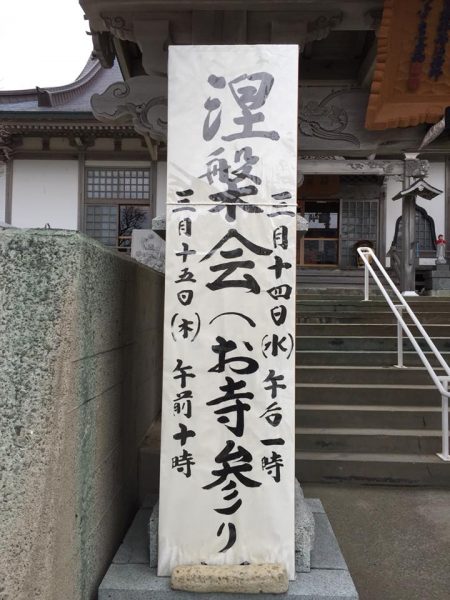 三月十四日(水)午后一時
涅槃会(お寺参り
三月十五日(木)午前十時